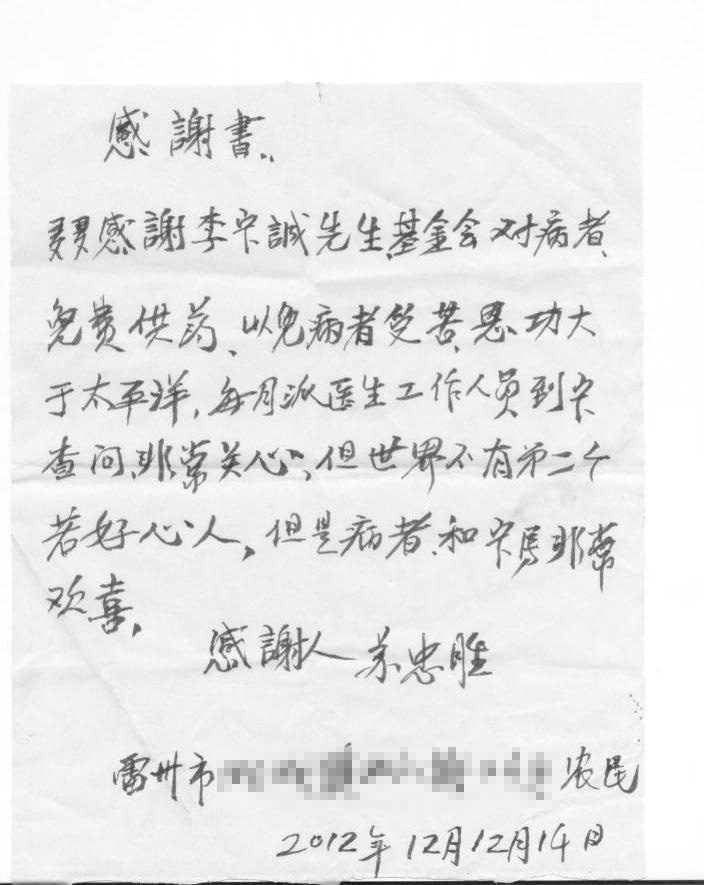 感謝書..
感謝李家誠先生基金会对病者、
免费供药、以免病者受苦、恩功大
于太平洋，每月派医生工作人员到家
查问、非常关心，但世界不有第二个
若好心人，但是病者、和家属非常
欢喜，
感謝人 苏忠胜
雷州市 农民
2012年12月12月14日